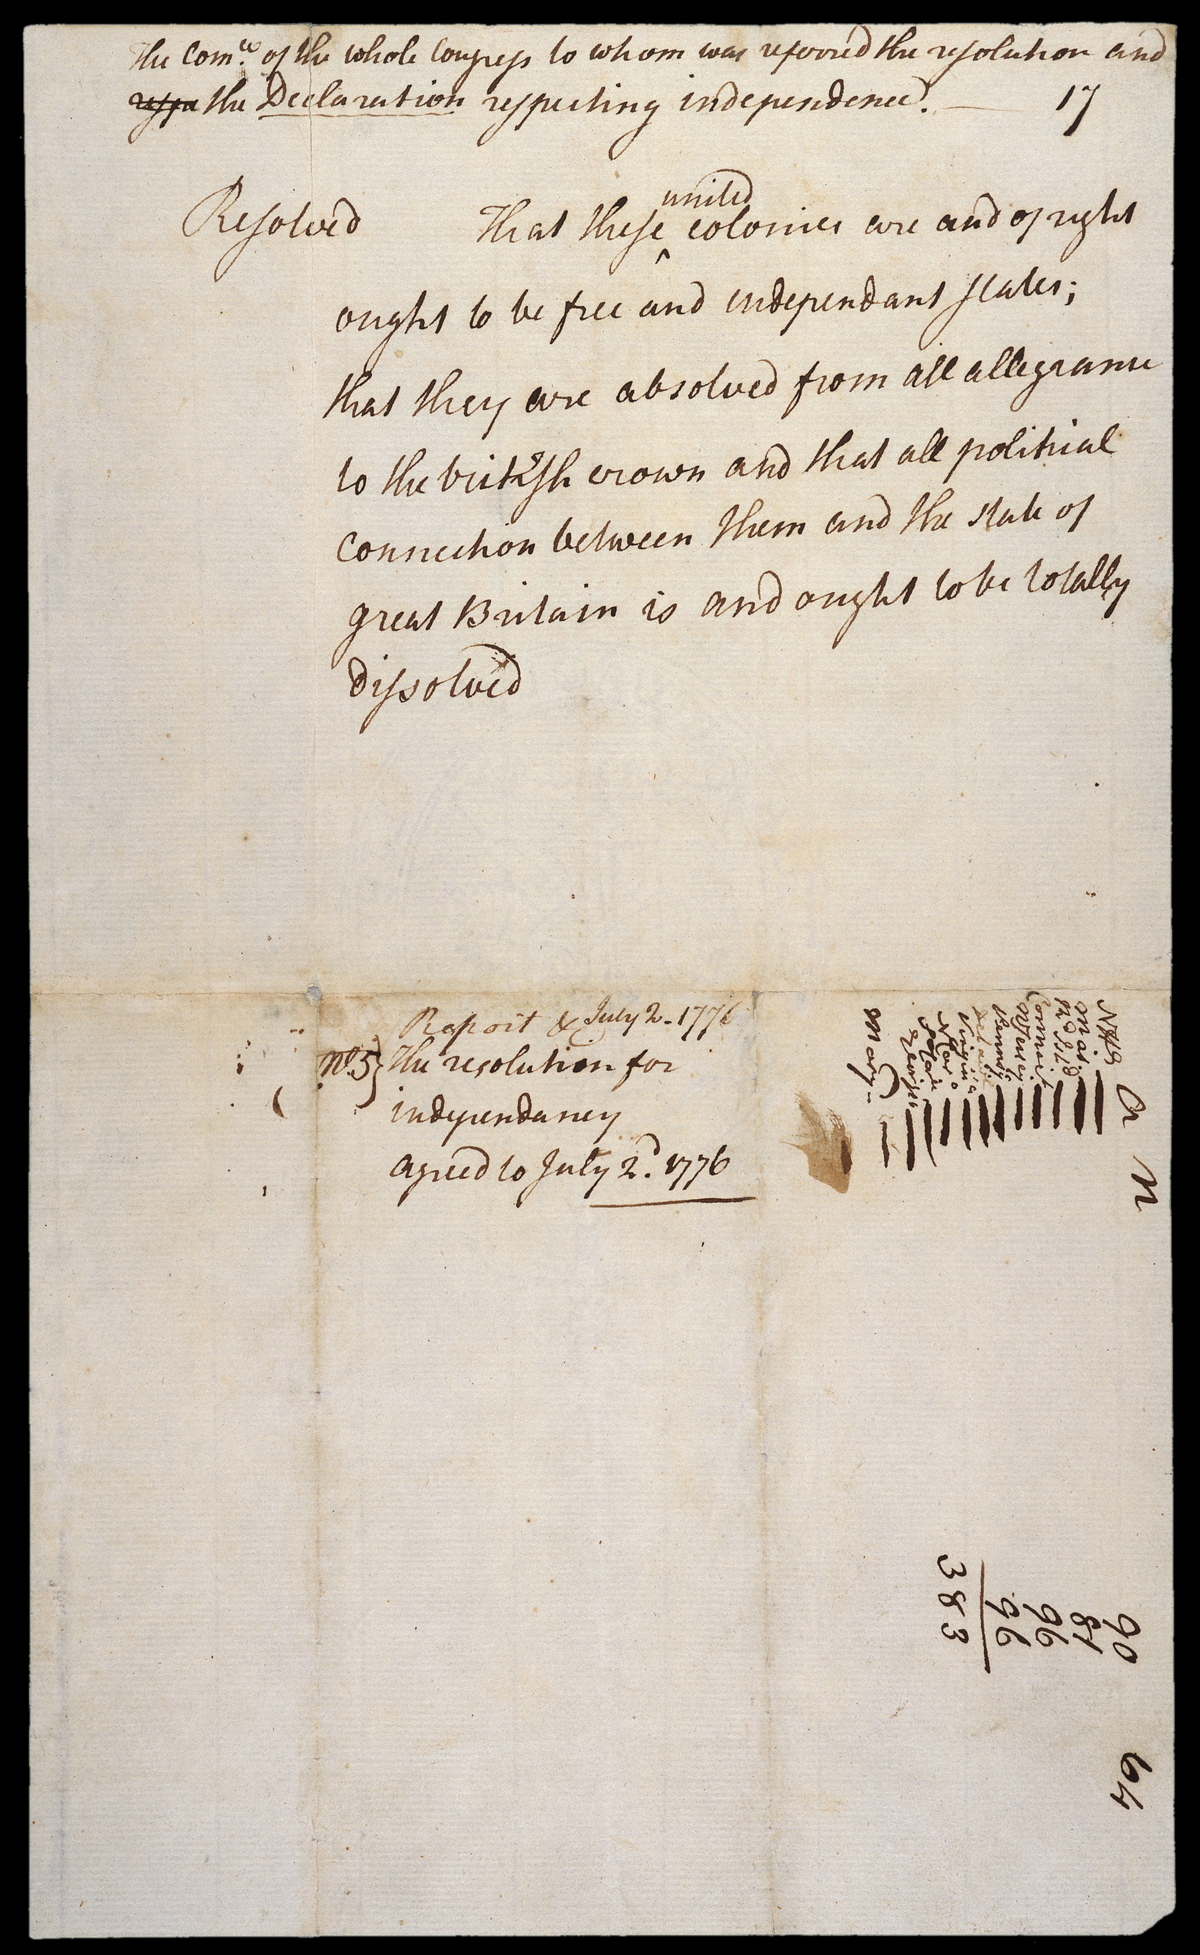 The Com.ee of the whole Congress to whom was referred the resolution and
the Declaration respecting independence. — 17
Resolved That these united colonies are and of right
ought to be free and independant states;
that they are absolved from all allegiance
to the british crown and that all political
connection between them and the state of
great Britain is and ought to be totally
dissolved
Report & July 2. 1776
No. 5} the resolution for
independancy
agreed to July 2d. 1776
Mary
Georgia
S. Caro
N. Caro
Virginia
Delaware
Pennsylv
N Jersey
Connect
R Isld
Mas.
N H
N
90
81
96
96
383
64